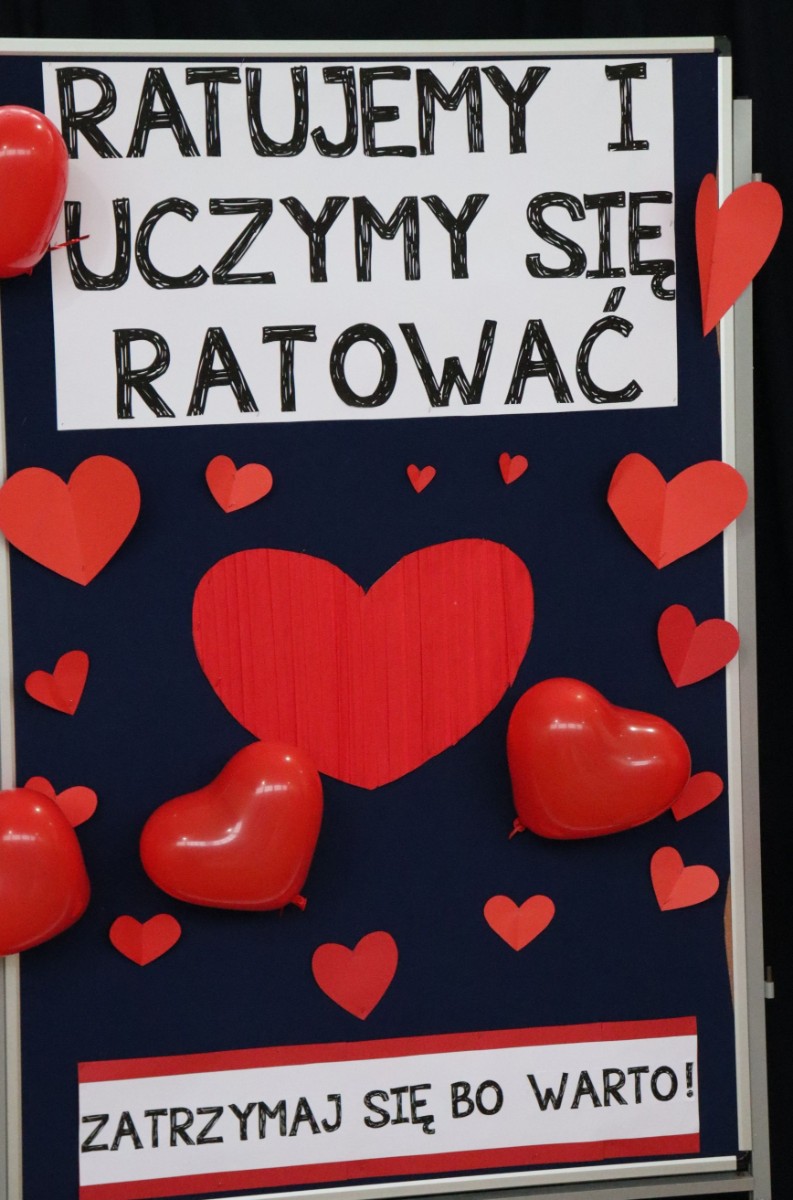 RATUJEMY I
UCZYMY SIĘ
RATOWAĆ
ZATRZYMAJ SIĘ BO WARTO!